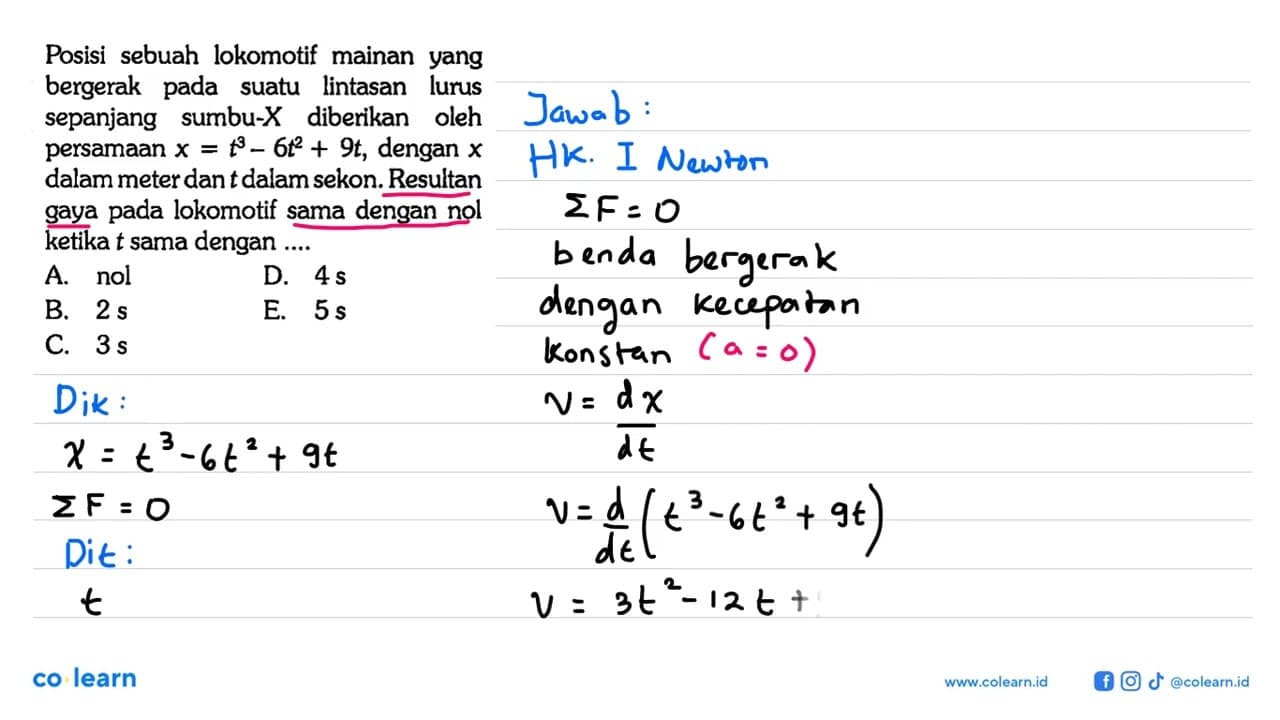 Posisi sebuah lokomotif mainan yang
bergerak pada suatu lintasan lurus
sepanjang sumbu-X diberikan oleh
persamaan x = t³ – 6t² + 9t, dengan x
dalam meter dan t dalam sekon. Resultan
gaya pada lokomotif sama dengan nol
ketika t sama dengan ....
A. nol D. 4 s
B. 2 s E. 5 s
C. 3 s
Dik:
x = t³ - 6t² + 9t
ΣF = 0
Dit:
t
Jawab:
HK. I Newton
ΣF = 0
benda bergerak
dengan kecepatan
konstan (a = 0)
v = dx/dt
v = d/dt (t³ - 6t² + 9t)
v = 3t² - 12t +
co learn
www.colearn.id
@colearn.id